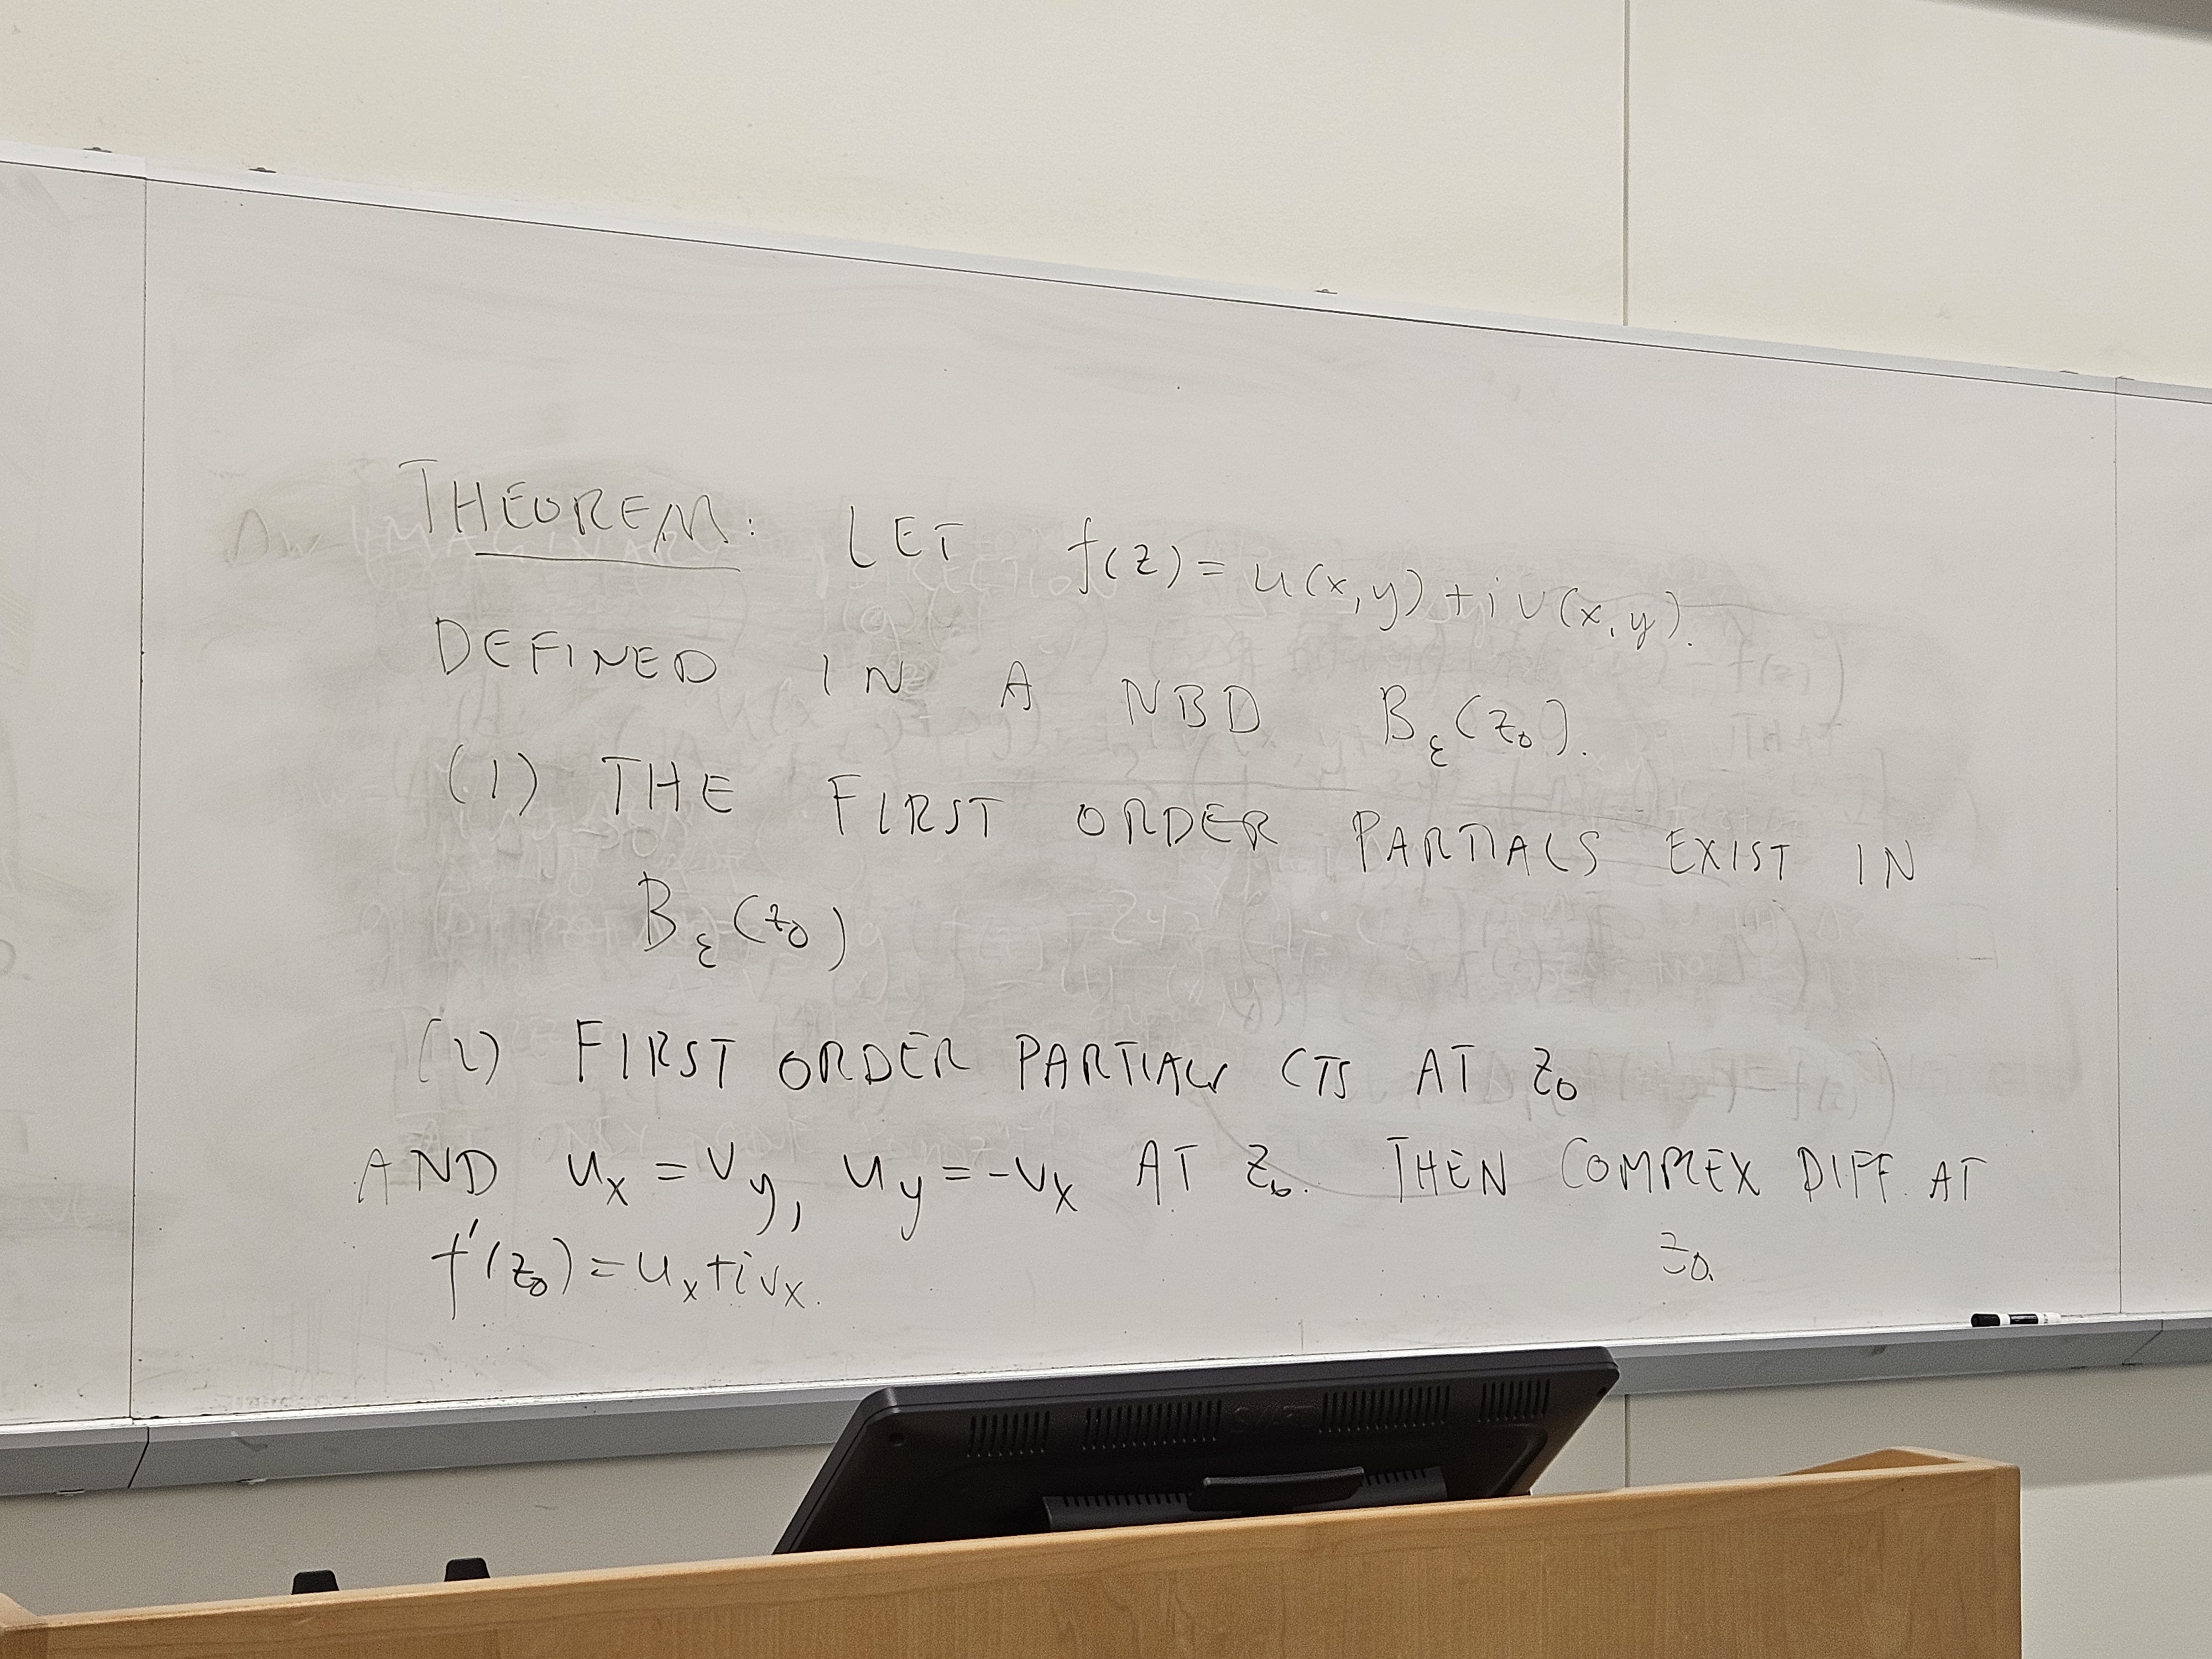 THEOREM: LET f(z) = u(x,y) + i v(x,y).
DEFINED IN A NBD B_ε(z₀).
(1) THE FIRST ORDER PARTIALS EXIST IN
B_ε(z₀)
(2) FIRST ORDER PARTIALS CTS AT z₀
AND u_x = v_y, u_y = -v_x AT z₀. THEN COMPLEX DIFF. AT
z₀.
f'(z₀) = u_x + i v_x.